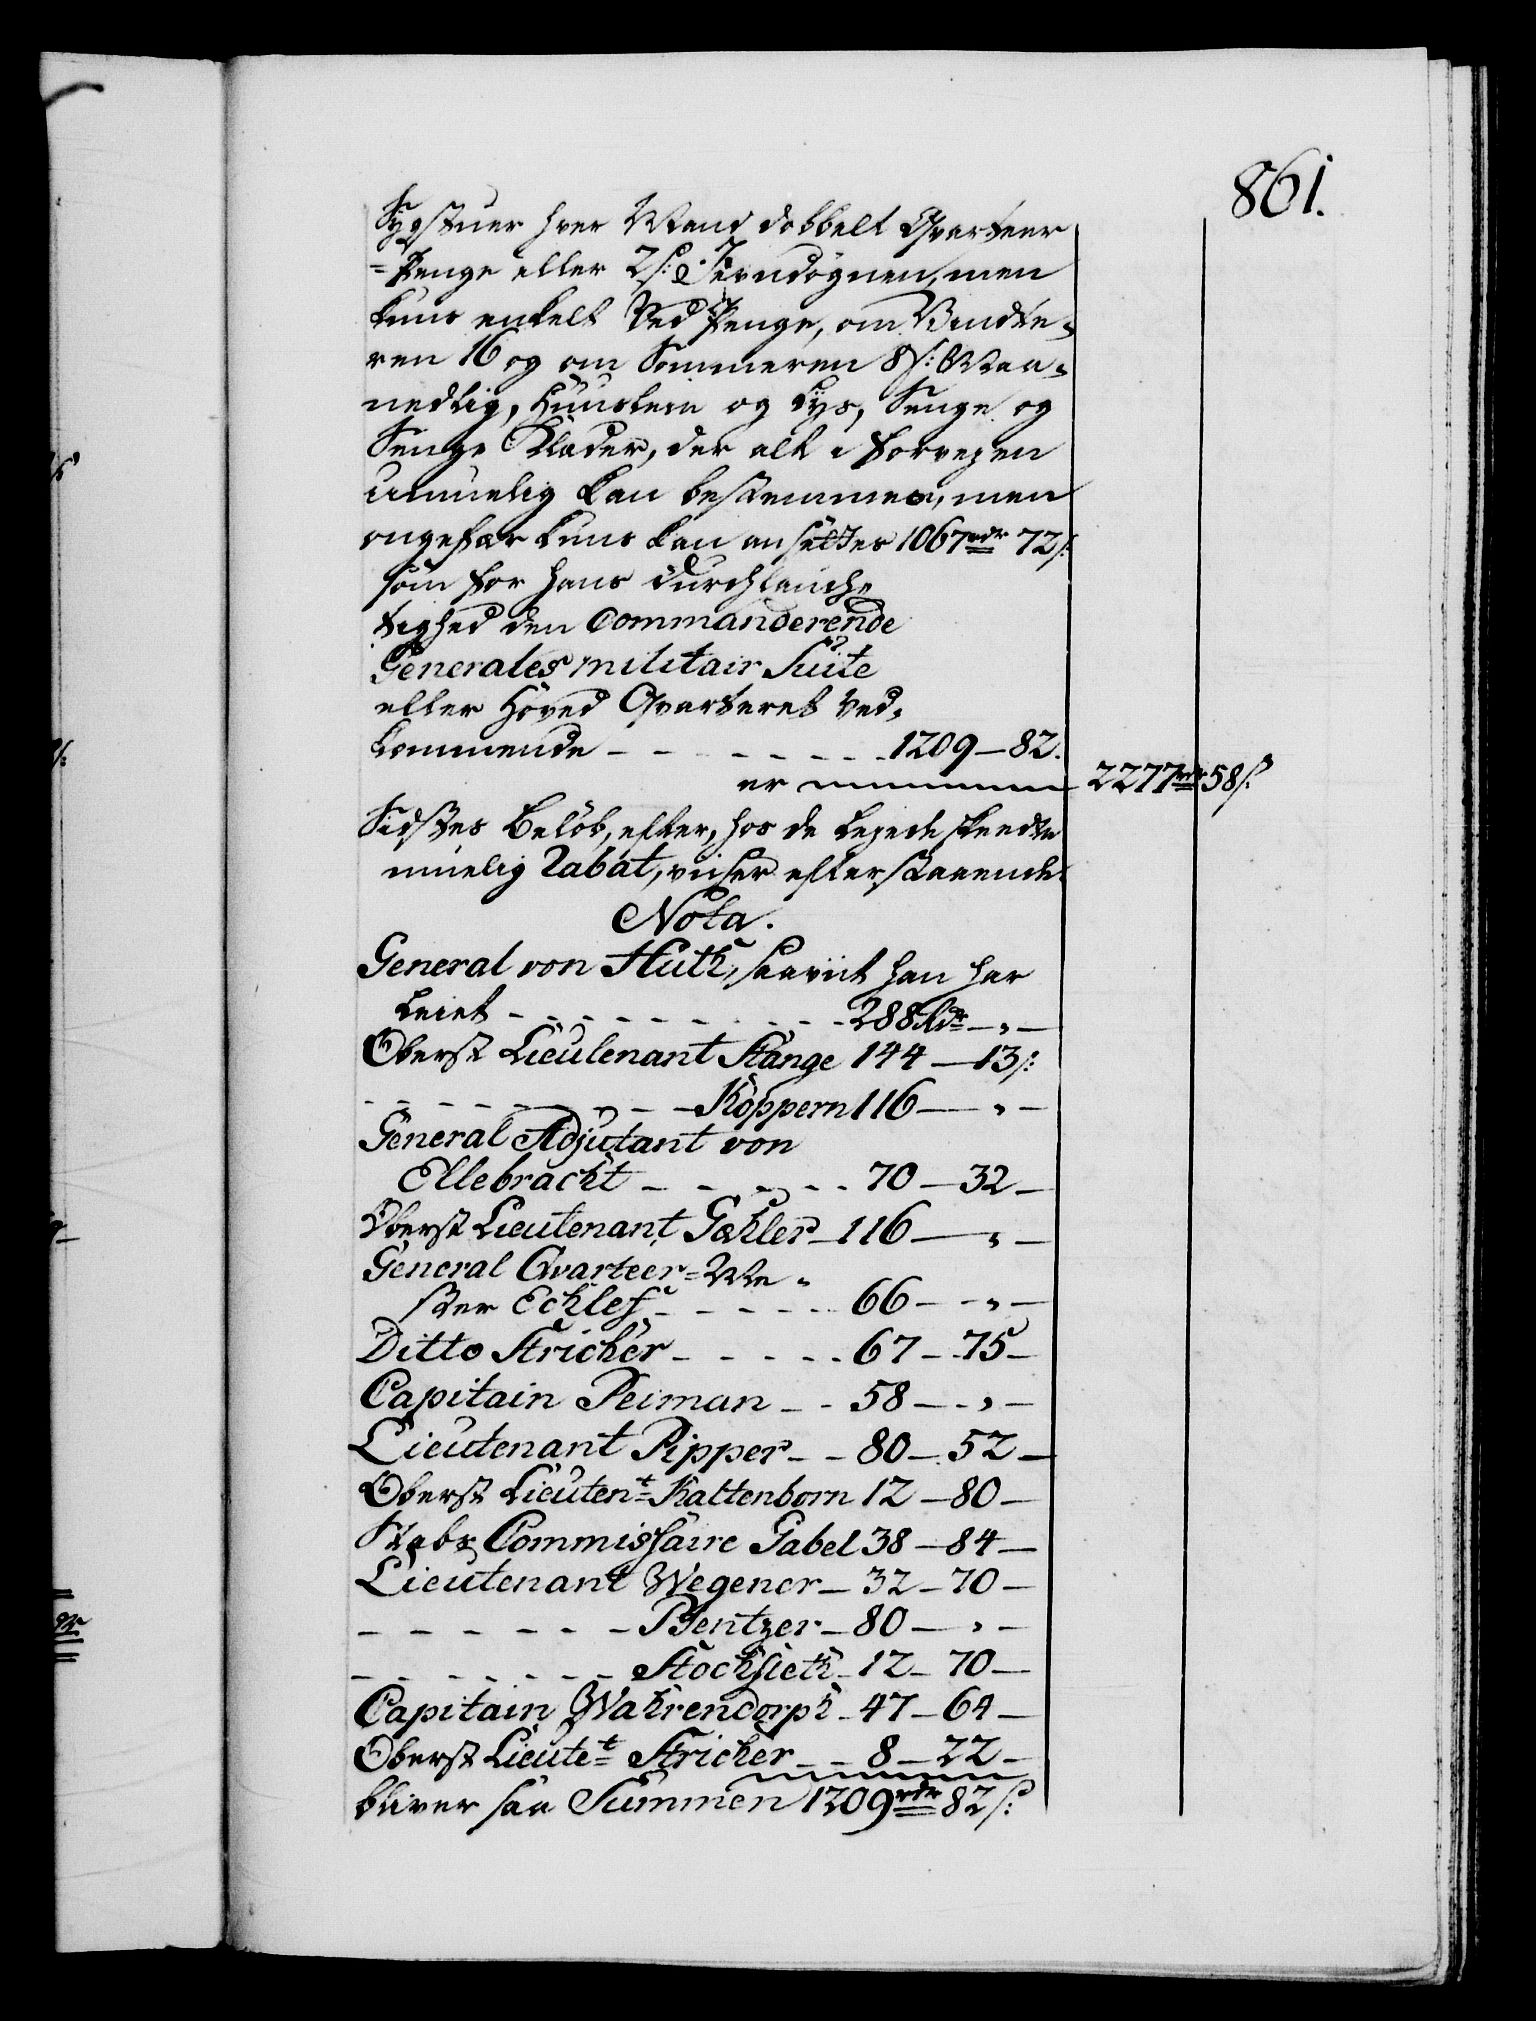 861.
Sygstuer hver Mand dobbelt Qvarteer
=Penge eller 2s: i Femdögnen, men
kuns enkelt Ved Penge, om Vindte,
ren 16 og om Sommeren 8s: Maa,
nedlig, Huuslein og Lys, Senge og
Senge Klæder, der alt i forvegen
umuelig kan bestemmes, men
ongefær kuns kan ansættes 1067rdr 72s:
som for hans Durchlauch,
tighed den Commanderende
Generales militair Suite
eller Hoved Qvarteret ved,
kommende - - - - - - - 1209-82.
er 2277rdr 58s:
Sidstes Belöb, efter, hos de Legede skeedte
muelig Rabat, viiser efterstaaende
Nota.
General von Huth, saavit han har
leiet - - - - - - - - - 288 Rdr - " -
Oberst Lieutenant Stange 144 - 13s:
- - - - - - - - - Köppern 116 - " -
General Adjutant von
Ellebracht - - - - - - 70 - 32 -
Oberst Lieutenant Gæhler - 116 - " -
General Qvarteer=Me,
ster Echlef - - - - - 66 - " -
Ditto Stricker - - - - - 67 - 75 -
Capitain Peiman - - 58 - " -
Lieutenant Pipper - - 80 - 52 -
Oberst Lieutent Kaltenborn 12 - 80 -
Stabs Commissaire Gabel 38 - 84 -
Lieutenant Wegener - 32 - 70 -
- - - - - - - Bentzer - 80 - " -
- - - - - - - Stochsieth - 12 - 70 -
Capitain Wahrendorph - 47 - 64 -
Oberst Lieutet Stricker - - 8 - 22 -
bliver saa Summen 1209rdr 82s: